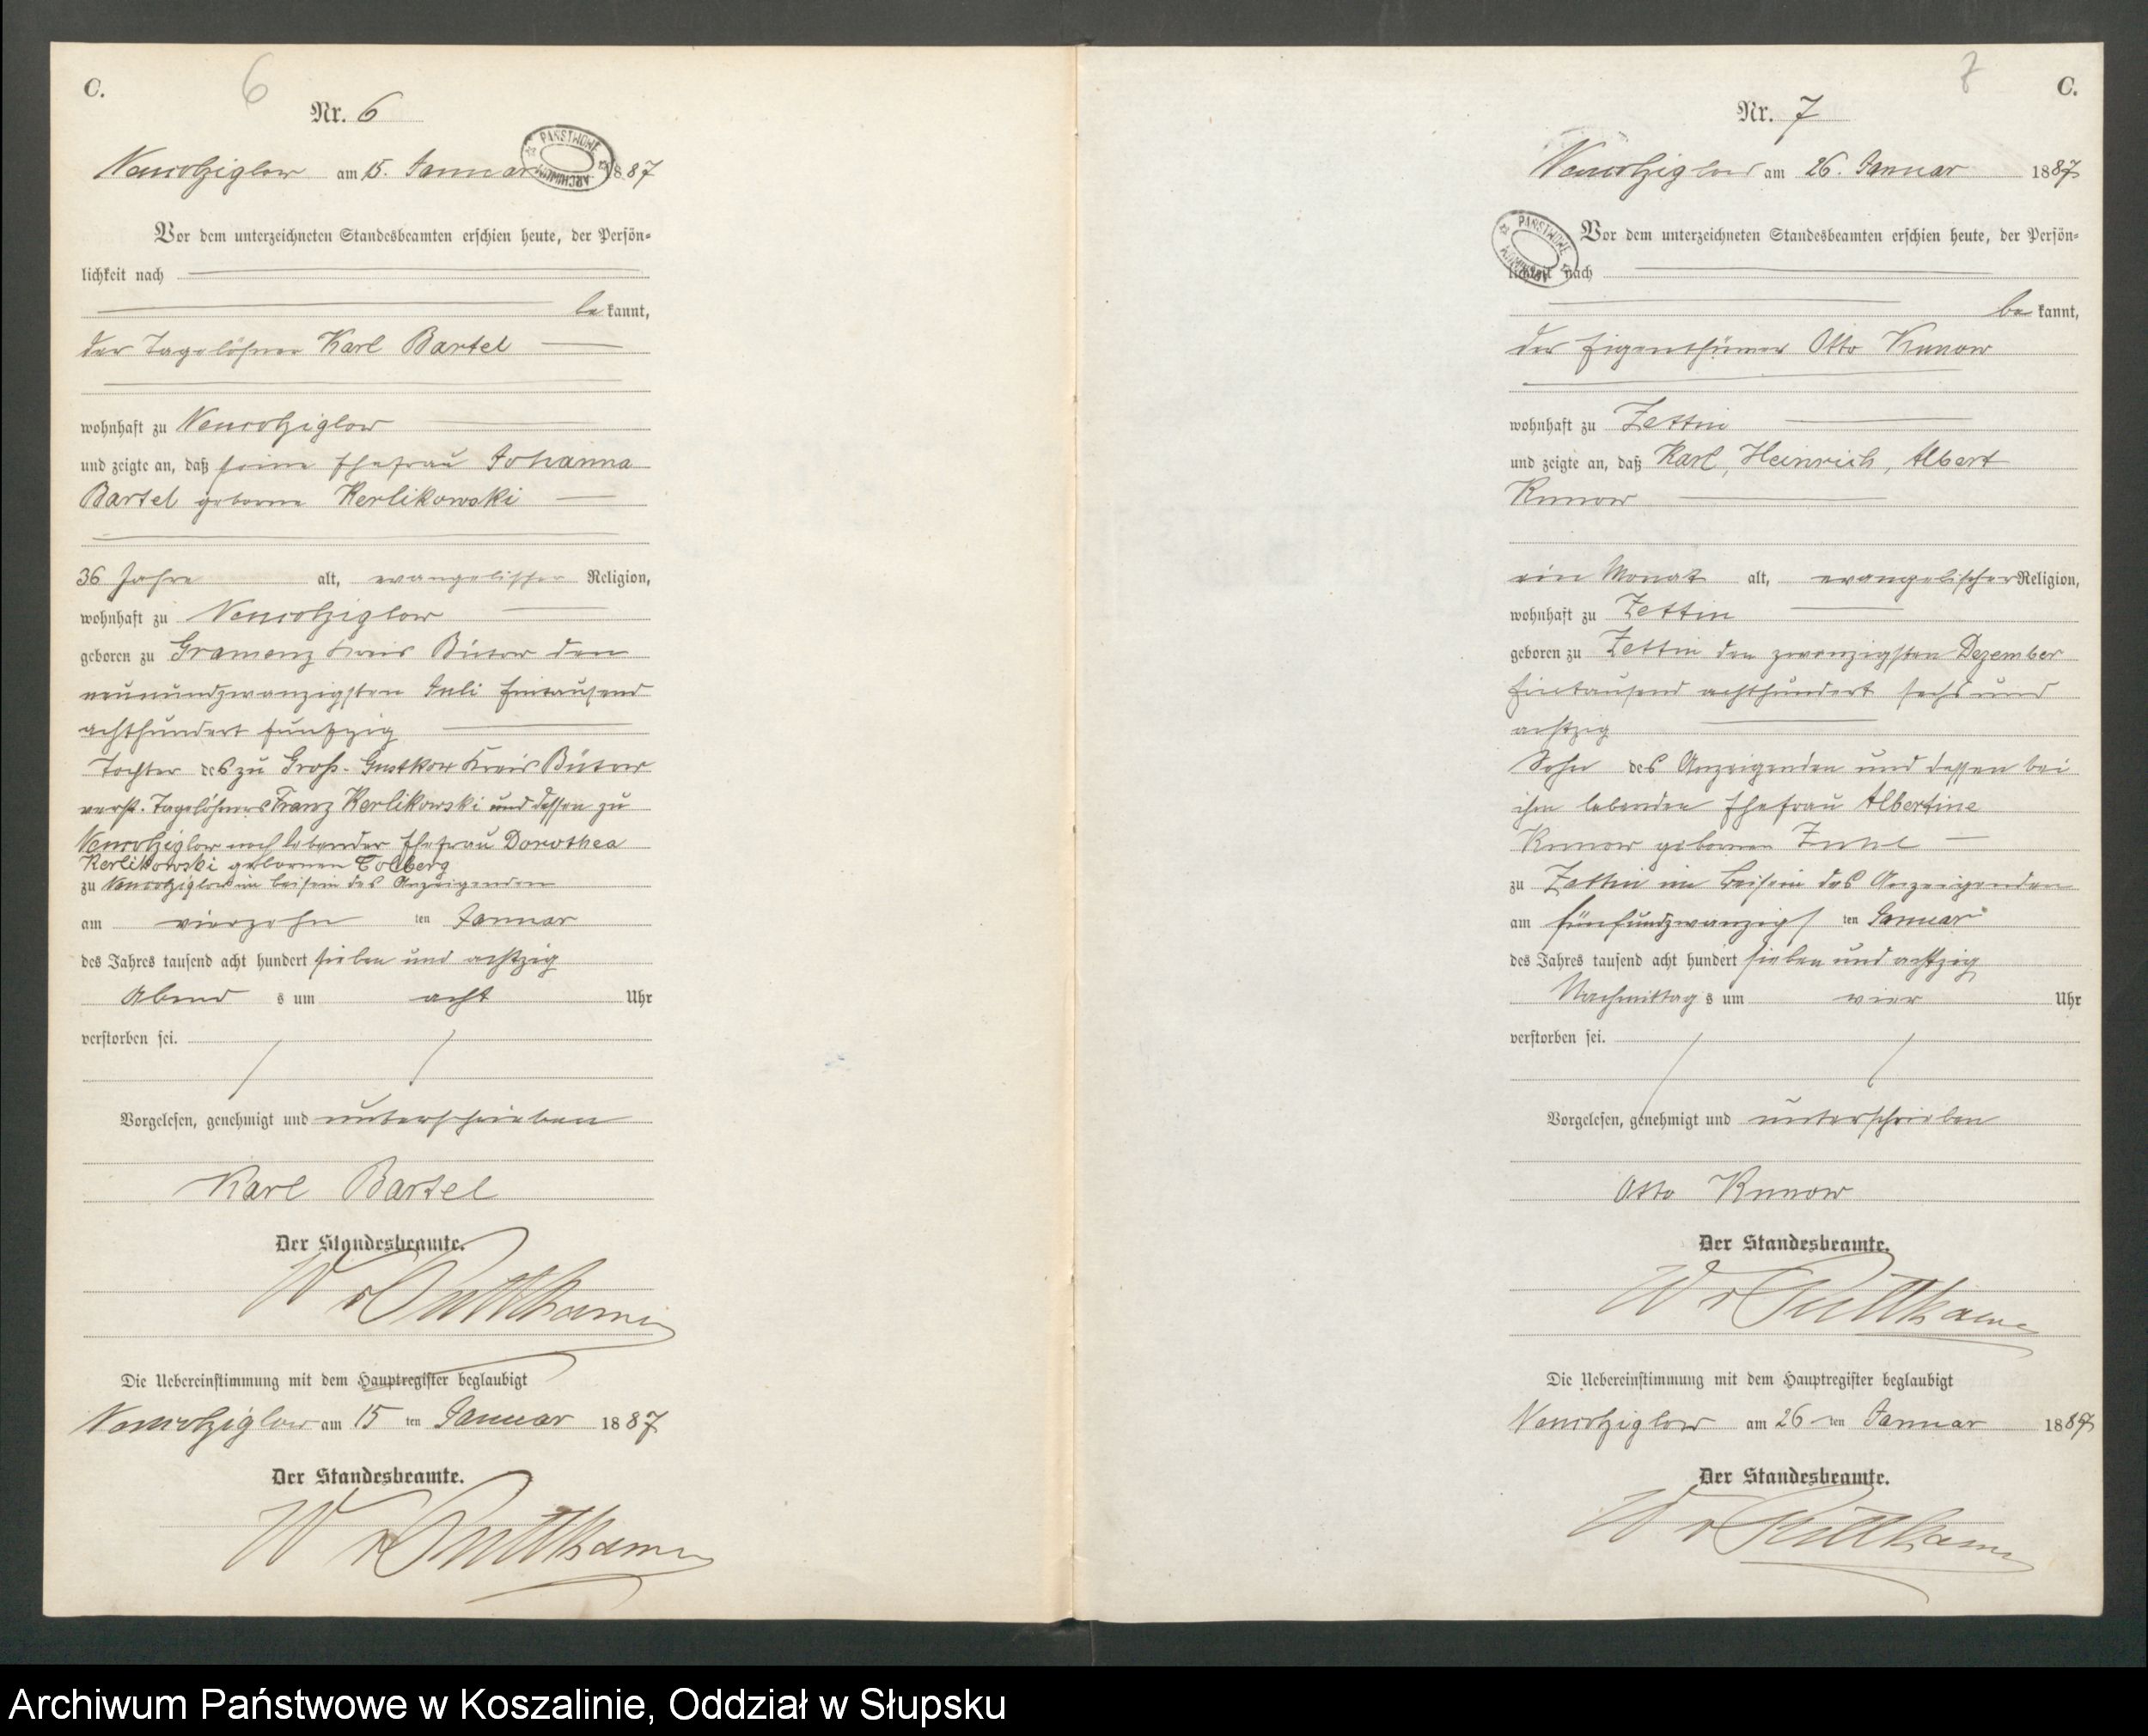 C.
6
Nr. 6
Neukolziglow am 15. Januar 1887
PAŃSTWOWE ARCHIWUM
Vor dem unterzeichneten Standesbeamten erschien heute, der Persön-
lichkeit nach
be kannt,
der Tagelöhner Karl Bartel
wohnhaft zu Neukolziglow
und zeigte an, daß seine Ehefrau Johanna
Bartel geborne Kerlikowski
36 Jahre alt, evangelischer Religion,
wohnhaft zu Neukolziglow
geboren zu Gramenz Kreis Bütow den
neunundzwanzigsten Juli Eintausend
achthundert funfzig
Tochter des zu Groß-Gustkow Kreis Bütow
verst. Tagelöhners Franz Kerlikowski und dessen zu
Neukolziglow noch lebender Ehefrau Dorothea
Kerlikowski gebornen Collberg
zu Neukolziglow im beisein des Anzeigenden
am vierzehn ten Januar
des Jahres tausend acht hundert sieben und achtzig
Abend s um acht Uhr
verstorben sei.
Vorgelesen, genehmigt und unterschrieben
Karl Bartel
Der Standesbeamte.
W v Puttkamer
Die Uebereinstimmung mit dem Hauptregister beglaubigt
Neukolziglow am 15 ten Januar 1887
Der Standesbeamte.
W v Puttkamer
7
C.
Nr. 7
Neukolziglow am 26. Januar 1887
PAŃSTWOWE ARCHIWUM
Vor dem unterzeichneten Standesbeamten erschien heute, der Persön-
lichkeit nach
be kannt,
der Eigenthümer Otto Kunow
wohnhaft zu Zettin
und zeigte an, daß Karl, Heinrich, Albert
Kunow
ein Monat alt, evangelischer Religion,
wohnhaft zu Zettin
geboren zu Zettin den zwanzigsten Dezember
Eintausend achthundert sechs und
achtzig
Sohn des Anzeigenden und dessen bei
ihm lebenden Ehefrau Albertine
Kunow gebornen
zu Zettin im Beisein des Anzeigenden
am fünfundzwanzigs ten Januar
des Jahres tausend acht hundert sieben und achtzig
Nachmittag s um vier Uhr
verstorben sei.
Vorgelesen, genehmigt und unterschrieben
Otto Kunow
Der Standesbeamte.
W v Puttkamer
Die Uebereinstimmung mit dem Hauptregister beglaubigt
Neukolziglow am 26 ten Januar 1887
Der Standesbeamte.
W v Puttkamer
Archiwum Państwowe w Koszalinie, Oddział w Słupsku